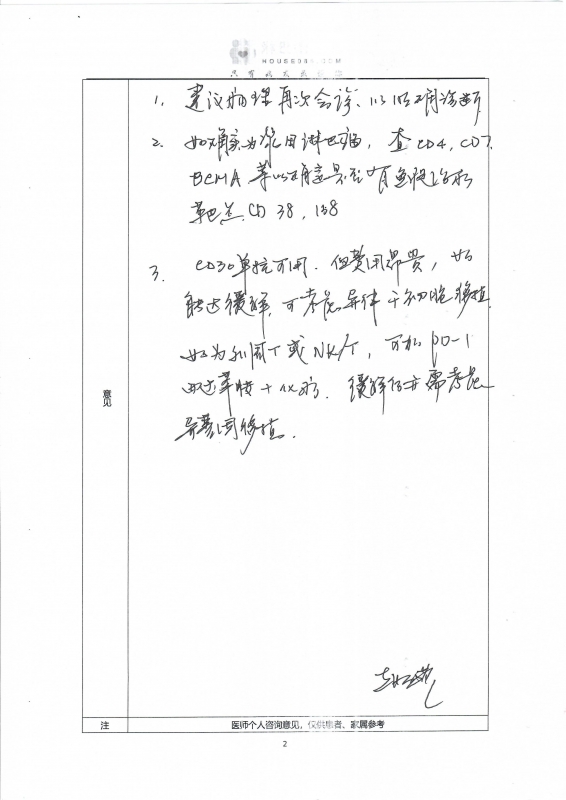 HOUSE086.COM
1. 建议病理再次会诊、以明确诊断
2. 如确实为 淋巴瘤，查CD4，CD7
BCMA 等以确定是否有免疫治疗
靶点.CD 38，138
3. CD30单抗可用.但费用昂贵，如
能达缓解，可考虑异体干细胞移植.
如为外周T或NK/T，可加PD-1
+ 化疗. 缓解后亦需考虑
异基因移植.
意见
注 医师个人咨询意见，仅供患者、家属参考
2